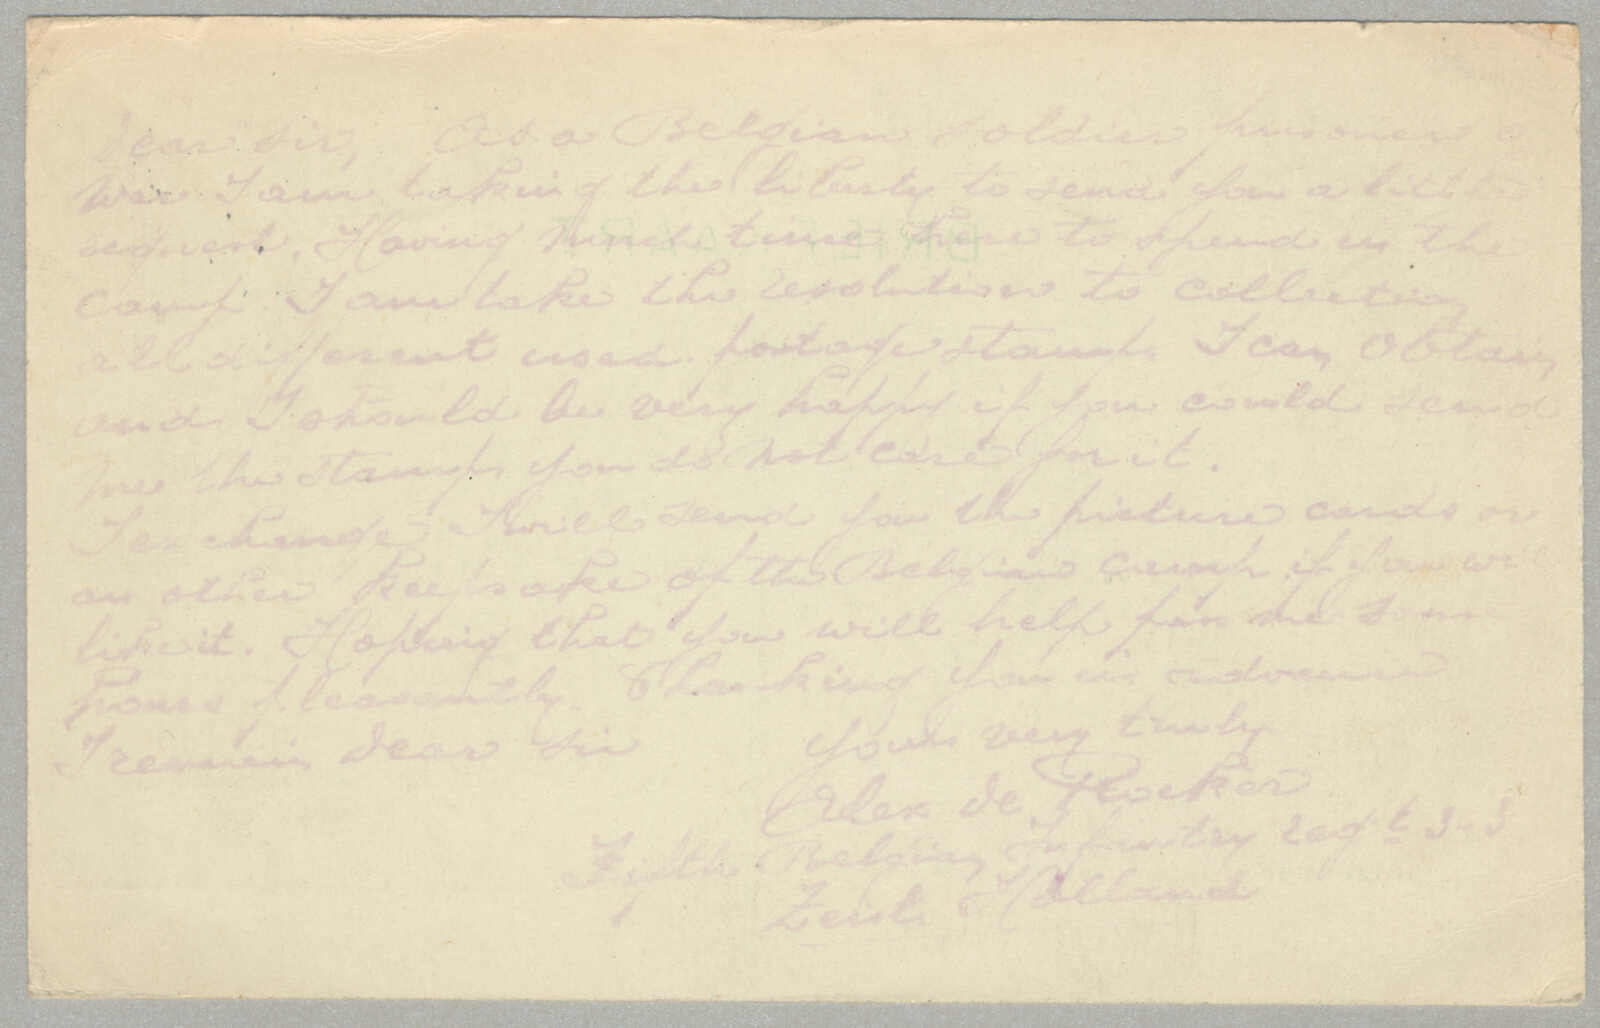 Dear Sir, As a Belgian soldier prisoner o
War I am taking the liberty to send you a little
request. Having much time here to spend in the
camp I am take the resolution to collecting
all different used postage stamps I can obtain
and I should be very happy if you could send
me the stamps you do not care for it.
I exchange I will send you the picture cards or
an other keepsake of the Belgian camp if you will
like it. Hoping that you will help for me some
hours pleasantly. Thanking you in advance
I remain dear Sir yours very truly
Alex de Rocker
Fifth Belgian Infantry Regt 3-3
Zeist Holland